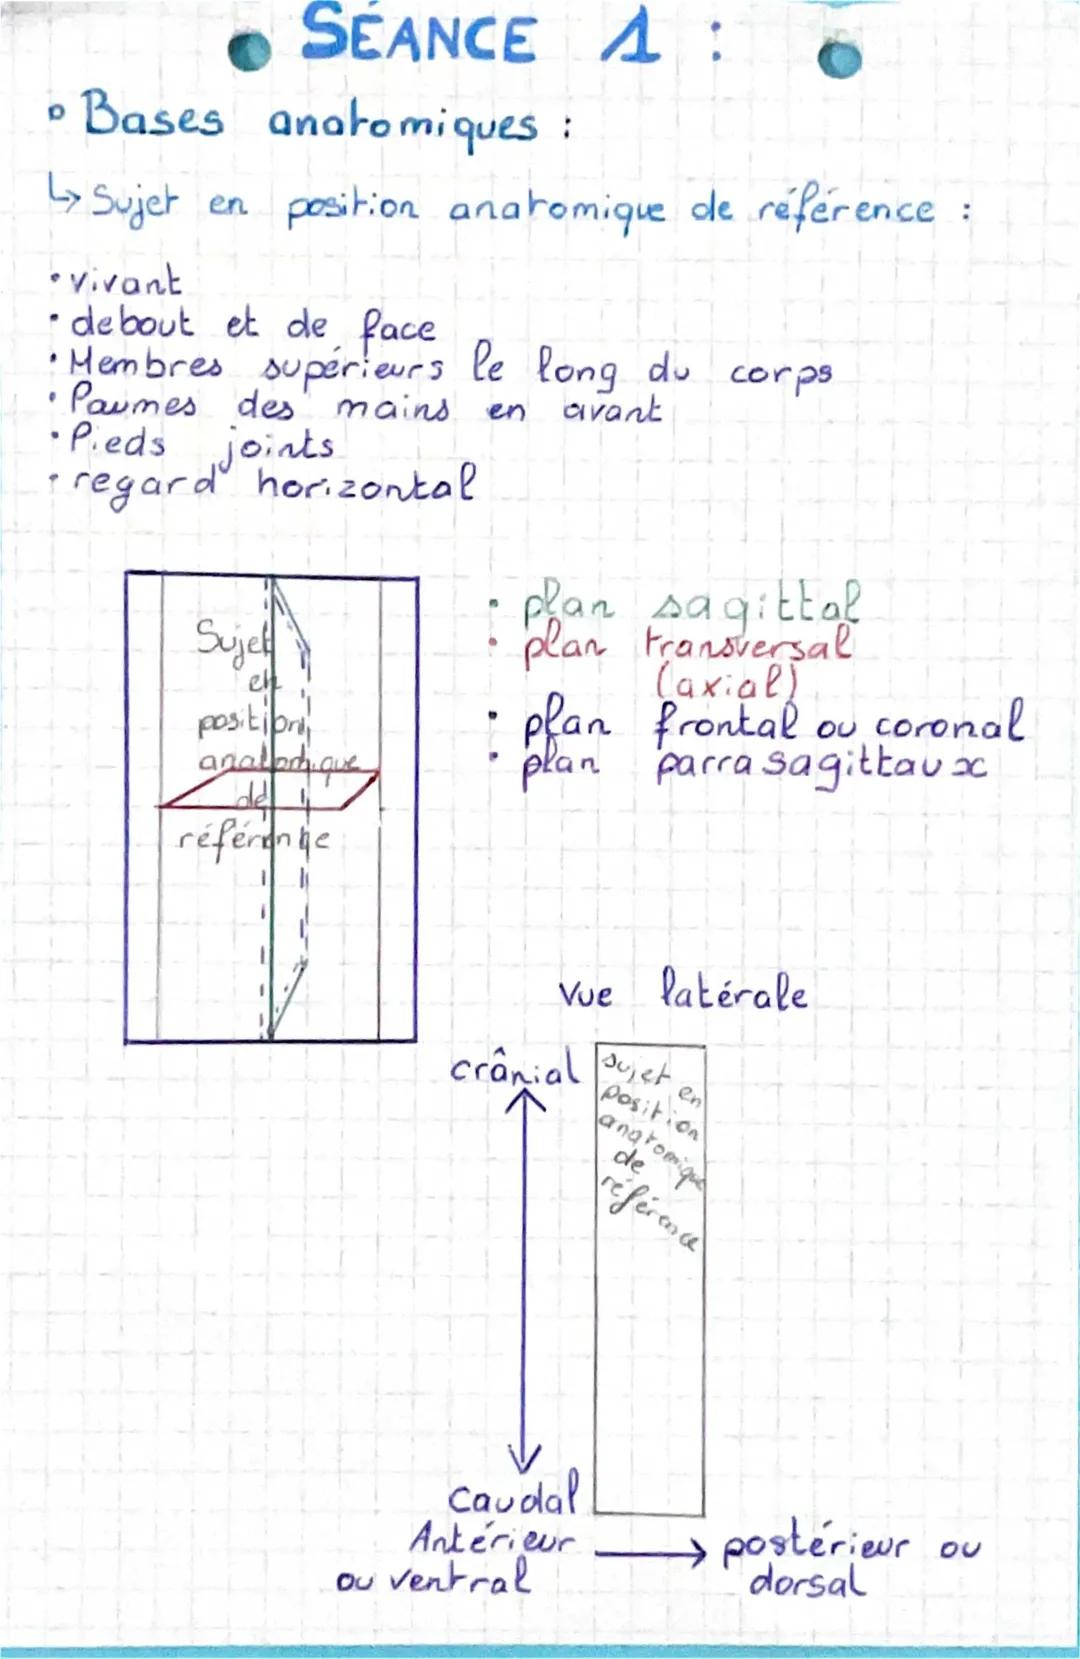 SÉANCE 1 :
• Bases anatomiques :
↳ Sujet en position anatomique de référence :
• vivant
• debout et de face
• Membres supérieurs le long du corps
• Paumes des mains en avant
• Pieds joints
• regard horizontal
Sujet
en
position
anatomique
de
référence
• plan sagittal
• plan transversal
(axial)
• plan frontal ou coronal
• plan parrasagittaux
Vue latérale
crânial
sujet en
position
anatomique
de
référence
Caudal
Antérieur → postérieur ou
ou ventral dorsal